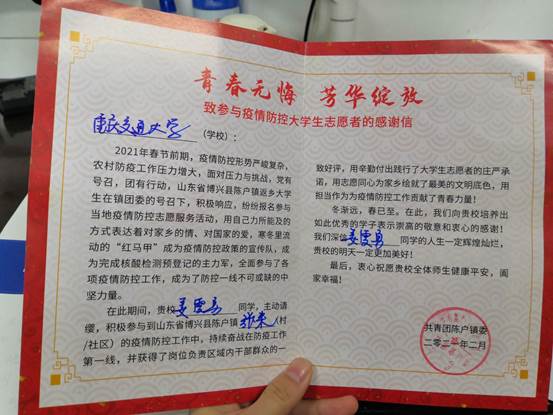 青春无悔 芳华绽放
致参与疫情防控大学生志愿者的感谢信
重庆交通大学 (学校):
2021年春节前期,疫情防控形势严峻复杂,
农村防控工作压力增大,面对压力与挑战,党有
号召,团有行动,山东省博兴县陈户镇返乡大学
生在镇团委的号召下,积极响应,纷纷报名参与
当地疫情防控志愿服务活动,用自己力所能及的
方式表达着对家乡的情、对国家的爱,寒冬里流
动的“红马甲”成为疫情防控政策的宣传队,成
为完成核酸检测预登记的主力军,全面参与了各
项疫情防控工作,成为了防控一线不可或缺的中
坚力量。
在此期间,贵校 同学,主动请
缨,积极参与到山东省博兴县陈户镇 (村
/社区)的疫情防控工作中,持续奋战在防疫工作
第一线,并获得了岗位负责区域内干部群众的一
致好评,用辛勤付出践行了大学生志愿者的庄严承
诺,用志愿同心为家乡绘就了最美的文明底色,用
担当作为为疫情防控工作贡献了青春力量!
冬渐远,春已至。在此,我们向贵校培养出
如此优秀的学子表示崇高的敬意和衷心的感谢!
我们深信 同学的人生一定辉煌灿烂,
贵校的明天一定更加美好!
最后,衷心祝愿贵校全体师生健康平安,阖
家幸福!
共青团陈户镇委
二零二一年二月